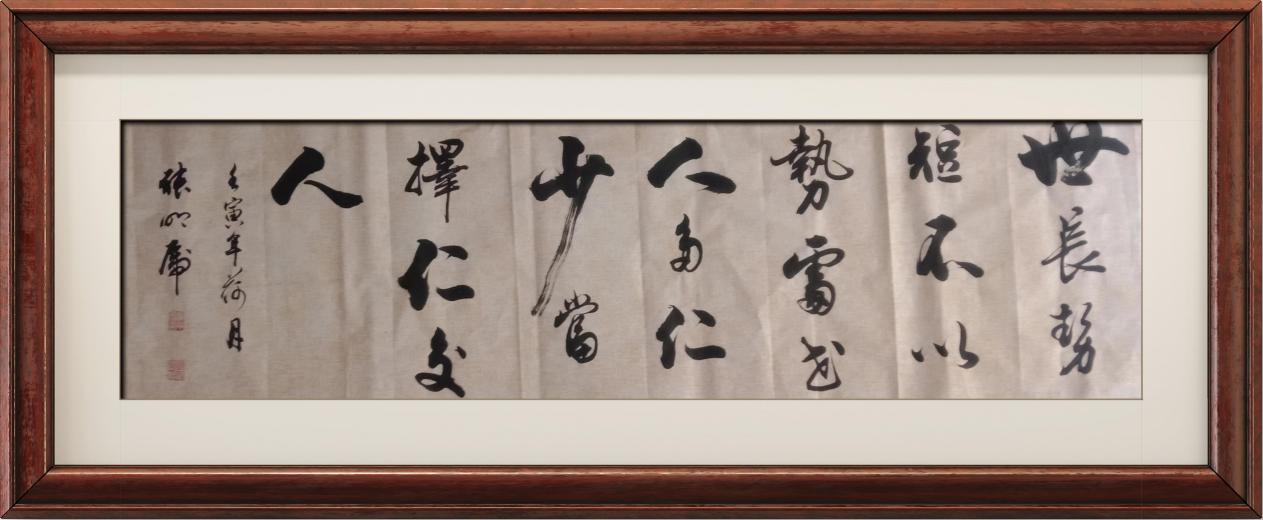 世長勢
短不以
勢世
人多仁
少當
擇仁交
人
壬寅年荷月